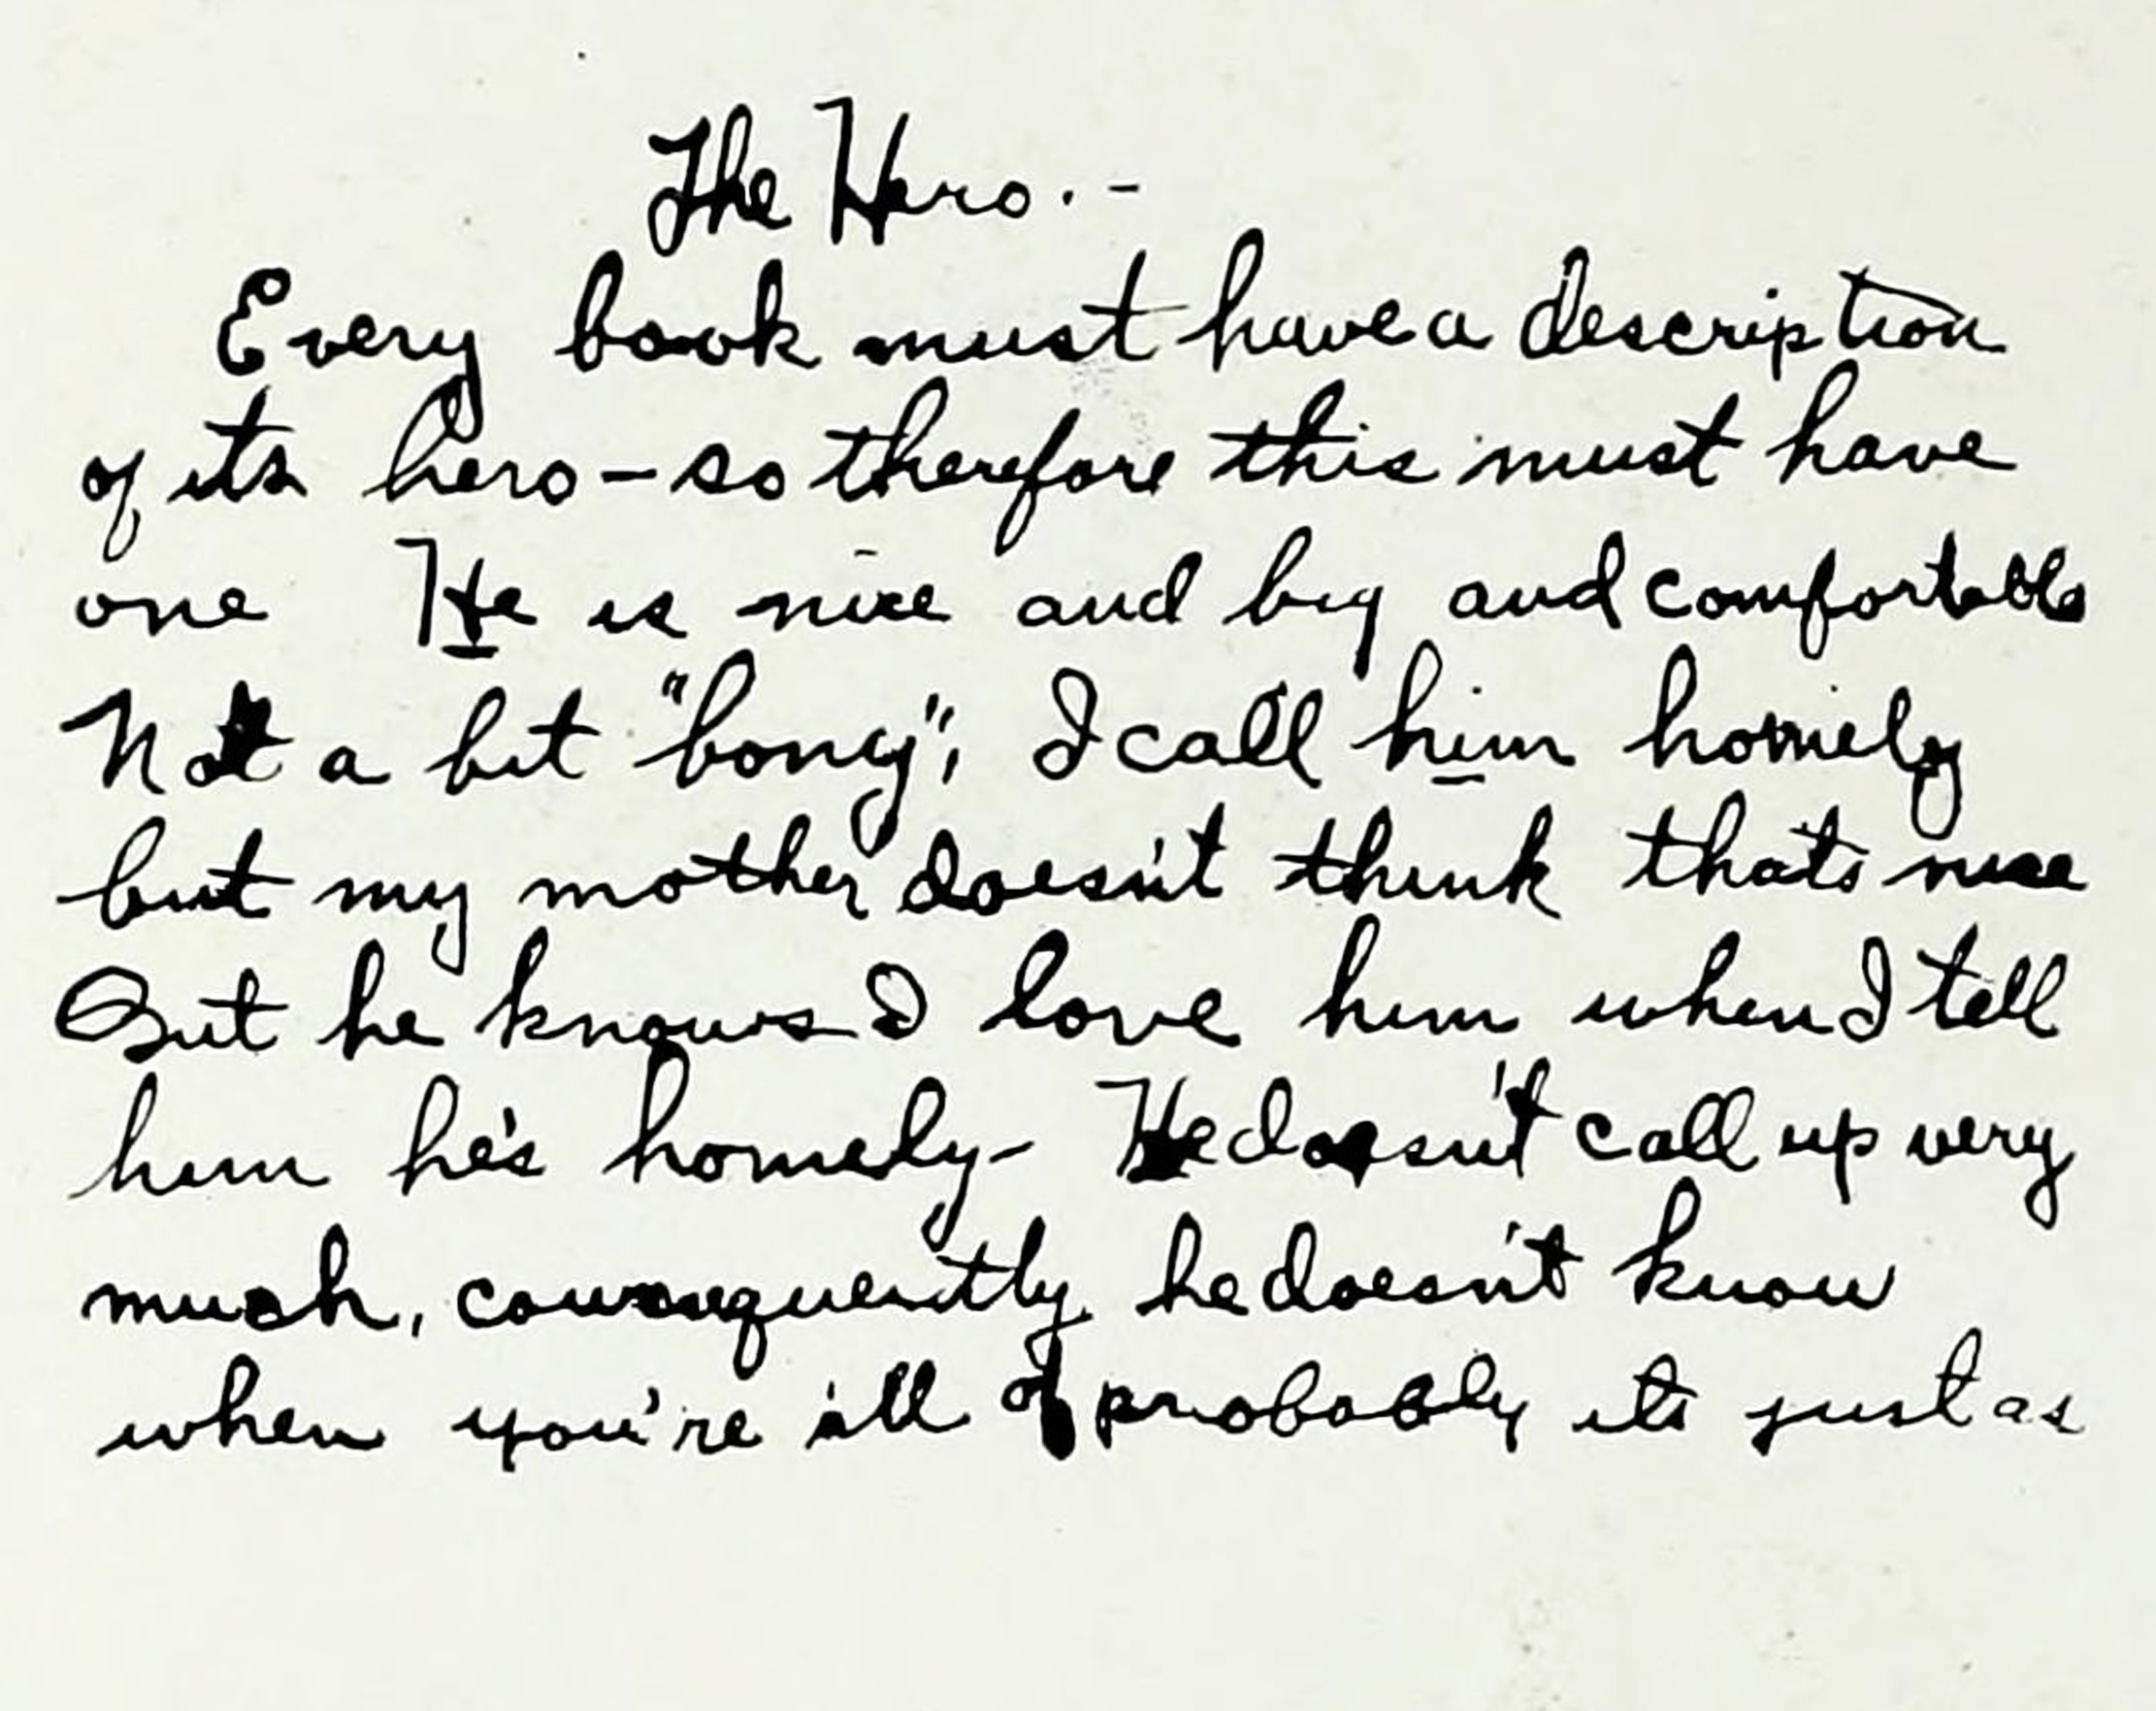 The Hero. -
Every book must have a description
of its hero - so therefore this must have
one He is nice and big and comfortable
Not a bit "bony"; I call him homely
but my mother doesn't think that's nice
But he knows I love him when I tell
him he's homely - He doesn't call up very
much, consequently he doesn't know
when you're ill of probably its just as